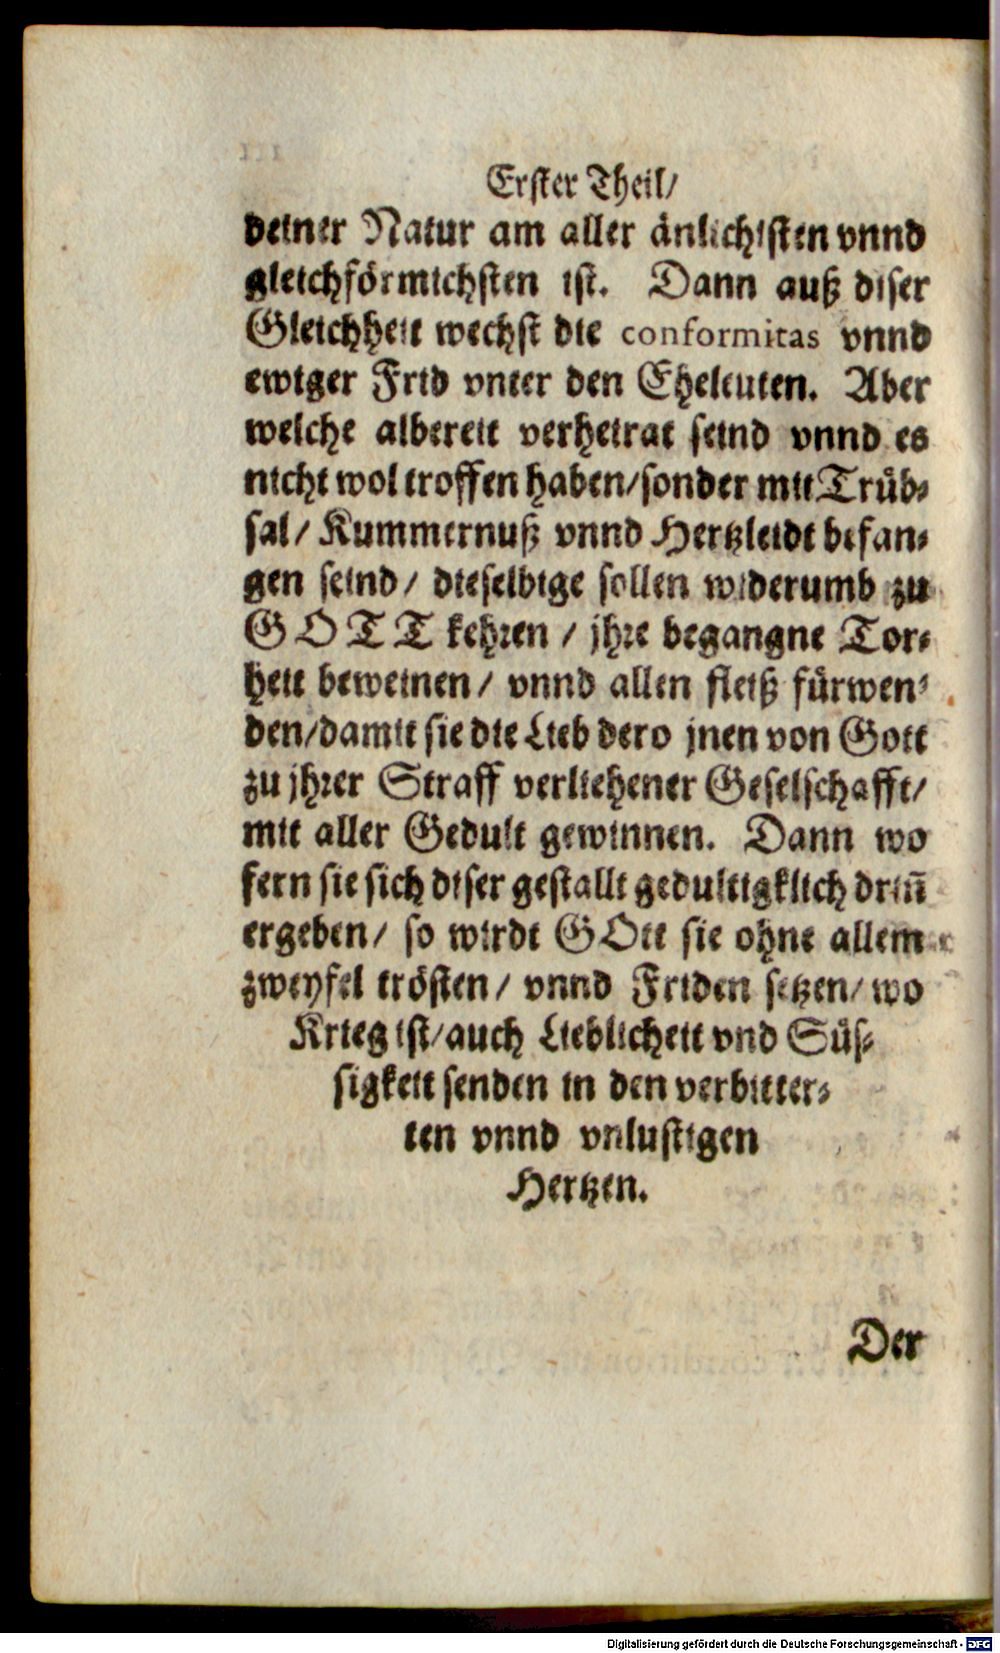 Erster Theil/
deiner Natur am aller änlichisten vnnd
gleichförmichsten ist. Dann auß diser
Gleichheit wechst die conformitas vnnd
ewiger Frid vnter den Eheleuten. Aber
welche albereit verheirat seind vnnd es
nicht wol troffen haben/sonder mit Trüb-
sal/ Kummernuß vnnd Hertzleidt befan-
gen seind/ dieselbige sollen widerumb zu
GOTT kehren / jhre begangne Tor-
heit beweinen/ vnnd allen fleiß fürwen-
den/damit sie die Lieb dero jnen von Gott
zu jhrer Straff verliehener Geselschafft/
mit aller Gedult gewinnen. Dann wo
fern sie sich diser gestallt gedultigklich driñ
ergeben/ so wirdt GOtt sie ohne allem
zweyfel trösten/ vnnd Friden setzen/ wo
Krieg ist/auch Lieblicheit vnd Süs-
sigkeit senden in den verbitter-
ten vnnd vnlustigen
Hertzen.
Der
Digitalisierung gefördert durch die Deutsche Forschungsgemeinschaft - DFG